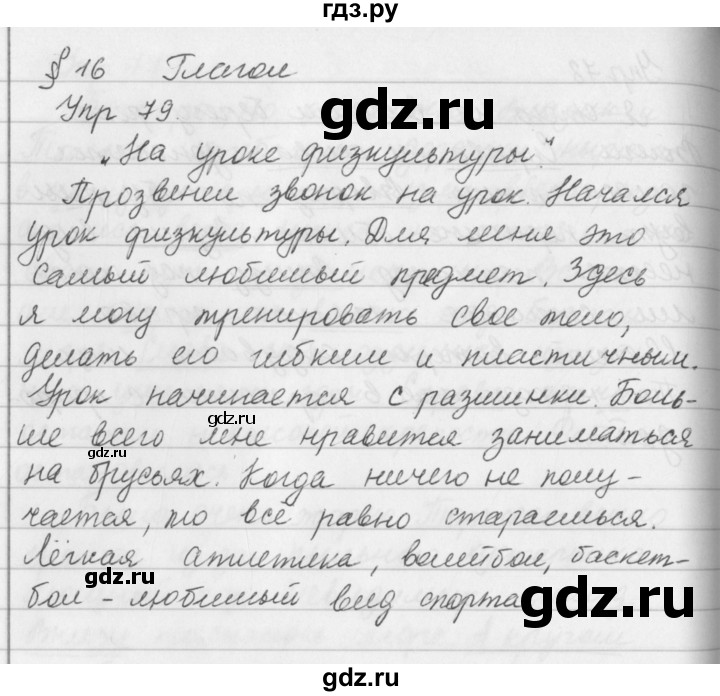 гдз.ру
§ 16 Глагол
Упр 79.
gdz.ru
„На уроке физкультуры."
Прозвенел звонок на урок. Начался
урок физкультуры. Для меня это
самый любимый предмет. Здесь
я могу тренировать свое тело,
делать его гибким и пластичным.
Урок начинается с разминки. Боль-
gdz.ru
ше всего мне нравится заниматься
gdz.ru
на брусьях. Когда ничего не полу-
чается, то все равно стараешься.
Лёгкая атлетика, волейбол, баскет-
gdz.ru
бол - любимый вид спорта
gdz.ru
gdz.ru